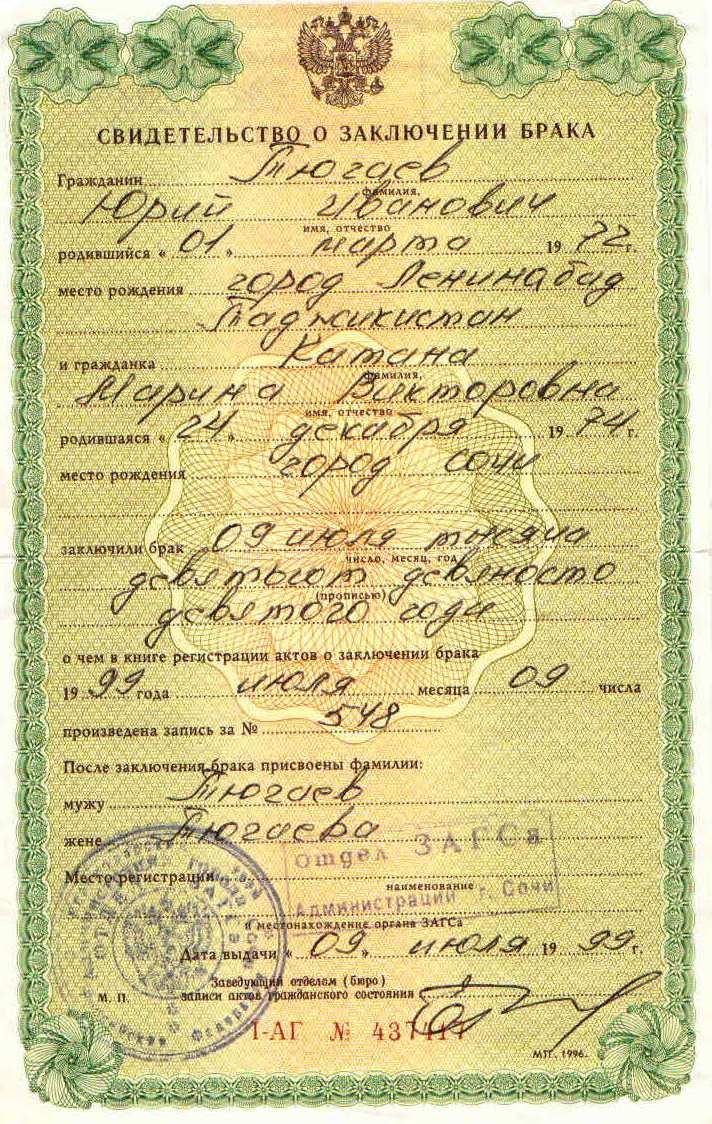 СВИДЕТЕЛЬСТВО О ЗАКЛЮЧЕНИИ БРАКА
Гражданин Тюгаев
фамилия,
Юрий Иванович
имя, отчество
родившийся « 01 » марта 19 72 г.
место рождения город Ленинабад
Таджикистан
и гражданка Катана
фамилия,
Марина Викторовна
имя, отчество
родившаяся « 24 » декабря 19 74 г.
место рождения город Сочи
заключили брак 09 июля тысяча
число, месяц, год
девятьсот девяносто
(прописью)
девятого года
о чем в книге регистрации актов о заключении брака
19 99 года июля месяца 09 числа
произведена запись за № 548
После заключения брака присвоены фамилии:
мужу Тюгаев
жене Тюгаева
Отдел ЗАГСа
Место регистрации
наименование
Администрации г. Сочи
и местонахождение органа ЗАГСа
Дата выдачи « 09 » июля 19 99 г.
Заведующий отделом (бюро)
М. П. записи актов гражданского состояния
I-АГ № 437
МТГ. 1996.